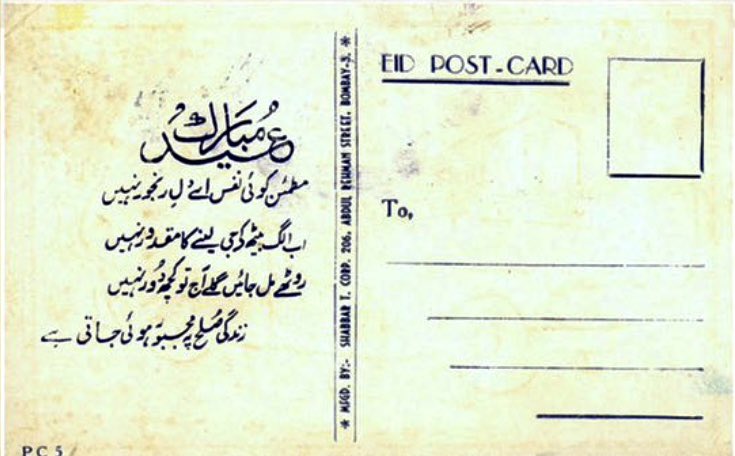 عید مبارک
مطمئن کوئی نفس اے دلِ رنجور نہیں
اب الگ بیٹھ کے جی لینے کا مقدور نہیں
روٹھے مل جائیں گلے آج تو کچھ دُور نہیں
زندگی صُلح پہ مجبور ہوئی جاتی ہے
PC 5
* MFGD. BY:- SHABBAR T. CORP. 206, ABDUL REHMAN STREET, BOMBAY-3. *
EID POST-CARD
To,